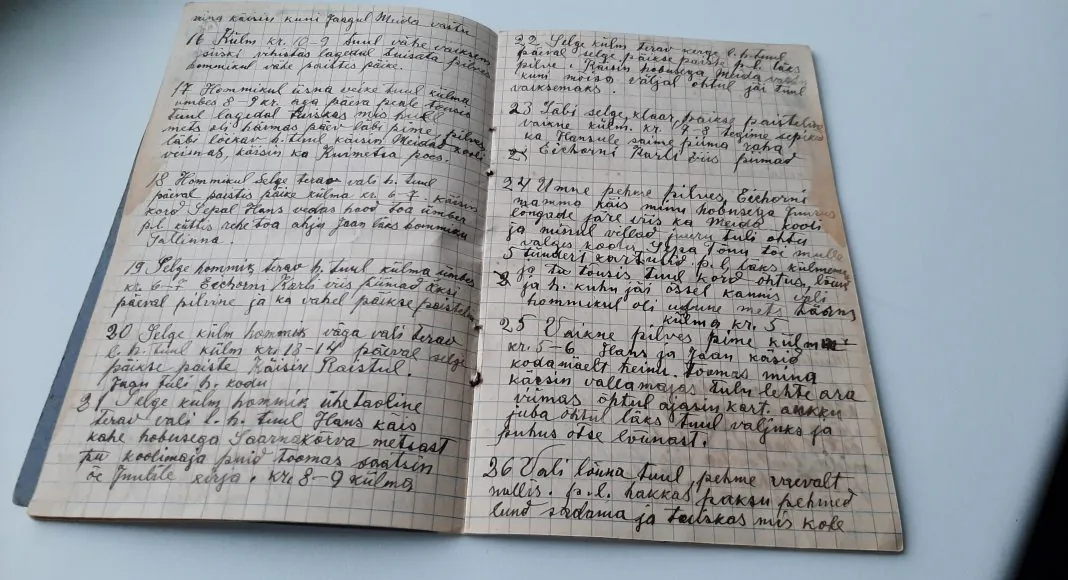 ning käisin kuni Jaagul Meida vastu
16 Külm kr. 10-9 tuul vähe vaiksem
siiski vihistas lagedal tuisata pilves
hommikul vähe paistes päike.
17 Hommikul üsna veike tuul külma
umbes 8-9 kr. aga päeva peale tõusis
tuul lagedal tuiskas mis hull
mets oli härmas päev läbi pime, pilves
läbi lõekav h. tuul käisin Meidat kooli
viimas, käisin ka Kuimetsa poes.
18 Hommikul Selge terav vali h. tuul
päeval paistis päike külma kr. 6-7. käisin
kord Sepal Hans vedas hood toa ümber
p.l. küttis rehe toa ahju Jaan läks hommiku
Tallinna.
19 Selge hommik terav h. tuul külma umbes
kr. 6-7 Eichorni Karli viis piimad üksi
päeval pilvine ja ka vahel päikse paisteline
20 Selge külm hommik väga vali terav
l. h. tuul külm kr. 13-14 päeval selge
päikse paiste Käisin Raistul.
Jaan tuli h. kodu
21 Selge külm hommik ühetaoline
terav vali l. h. tuul Hans käis
kahe hobusega Saarnakõrva metsast
koolimaja puid toomas saatsin
õe Juulile kirja. kr. 8-9 külma
22 Selge külm terav kerge l. h. tuul
päeval selge päikse paiste p.l. läks
pilve. Käisin hobusega Meida
kuni mõisa väljal õhtul jäi tuul
vaiksemaks.
23 Läbi selge, klaar, päikse paisteline
vaikne külm. kr. 7-8 tegime sepikut
ka Hansule saime piima raha
Eichorni Karli viis piimad
24 Umne pehme pilves, Eichorni
mamma käis minu hobusega Juurus
lõngade järe viis ka Meida kooli
ja minul villad juuru tuli õhtu
valges kodu, Sepa Tõnu tõi mulle
5 tündert kartulid p.l. läks külmem
ja tõusis tuul kord õhtus,
ja h. kuhu jäi öösel kannis vali
hommikul oli udune mets härmas
külma kr. 5
25 Vaikne pilves pime külm
kr. 5-6 Hans ja Jaan käisid
kodamäelt heinu toomas ning
käisin vallamajas tulu lehte ära
viimas õhtul ajasin kart. auku
juba õhtul läks tuul valjuks ja
puhus otse lõunast.
26 Vali lõuna tuul, pehme vaevalt
nullis. p.l. hakkas paksu pehmed
lund sadama ja tuiskas mis kole